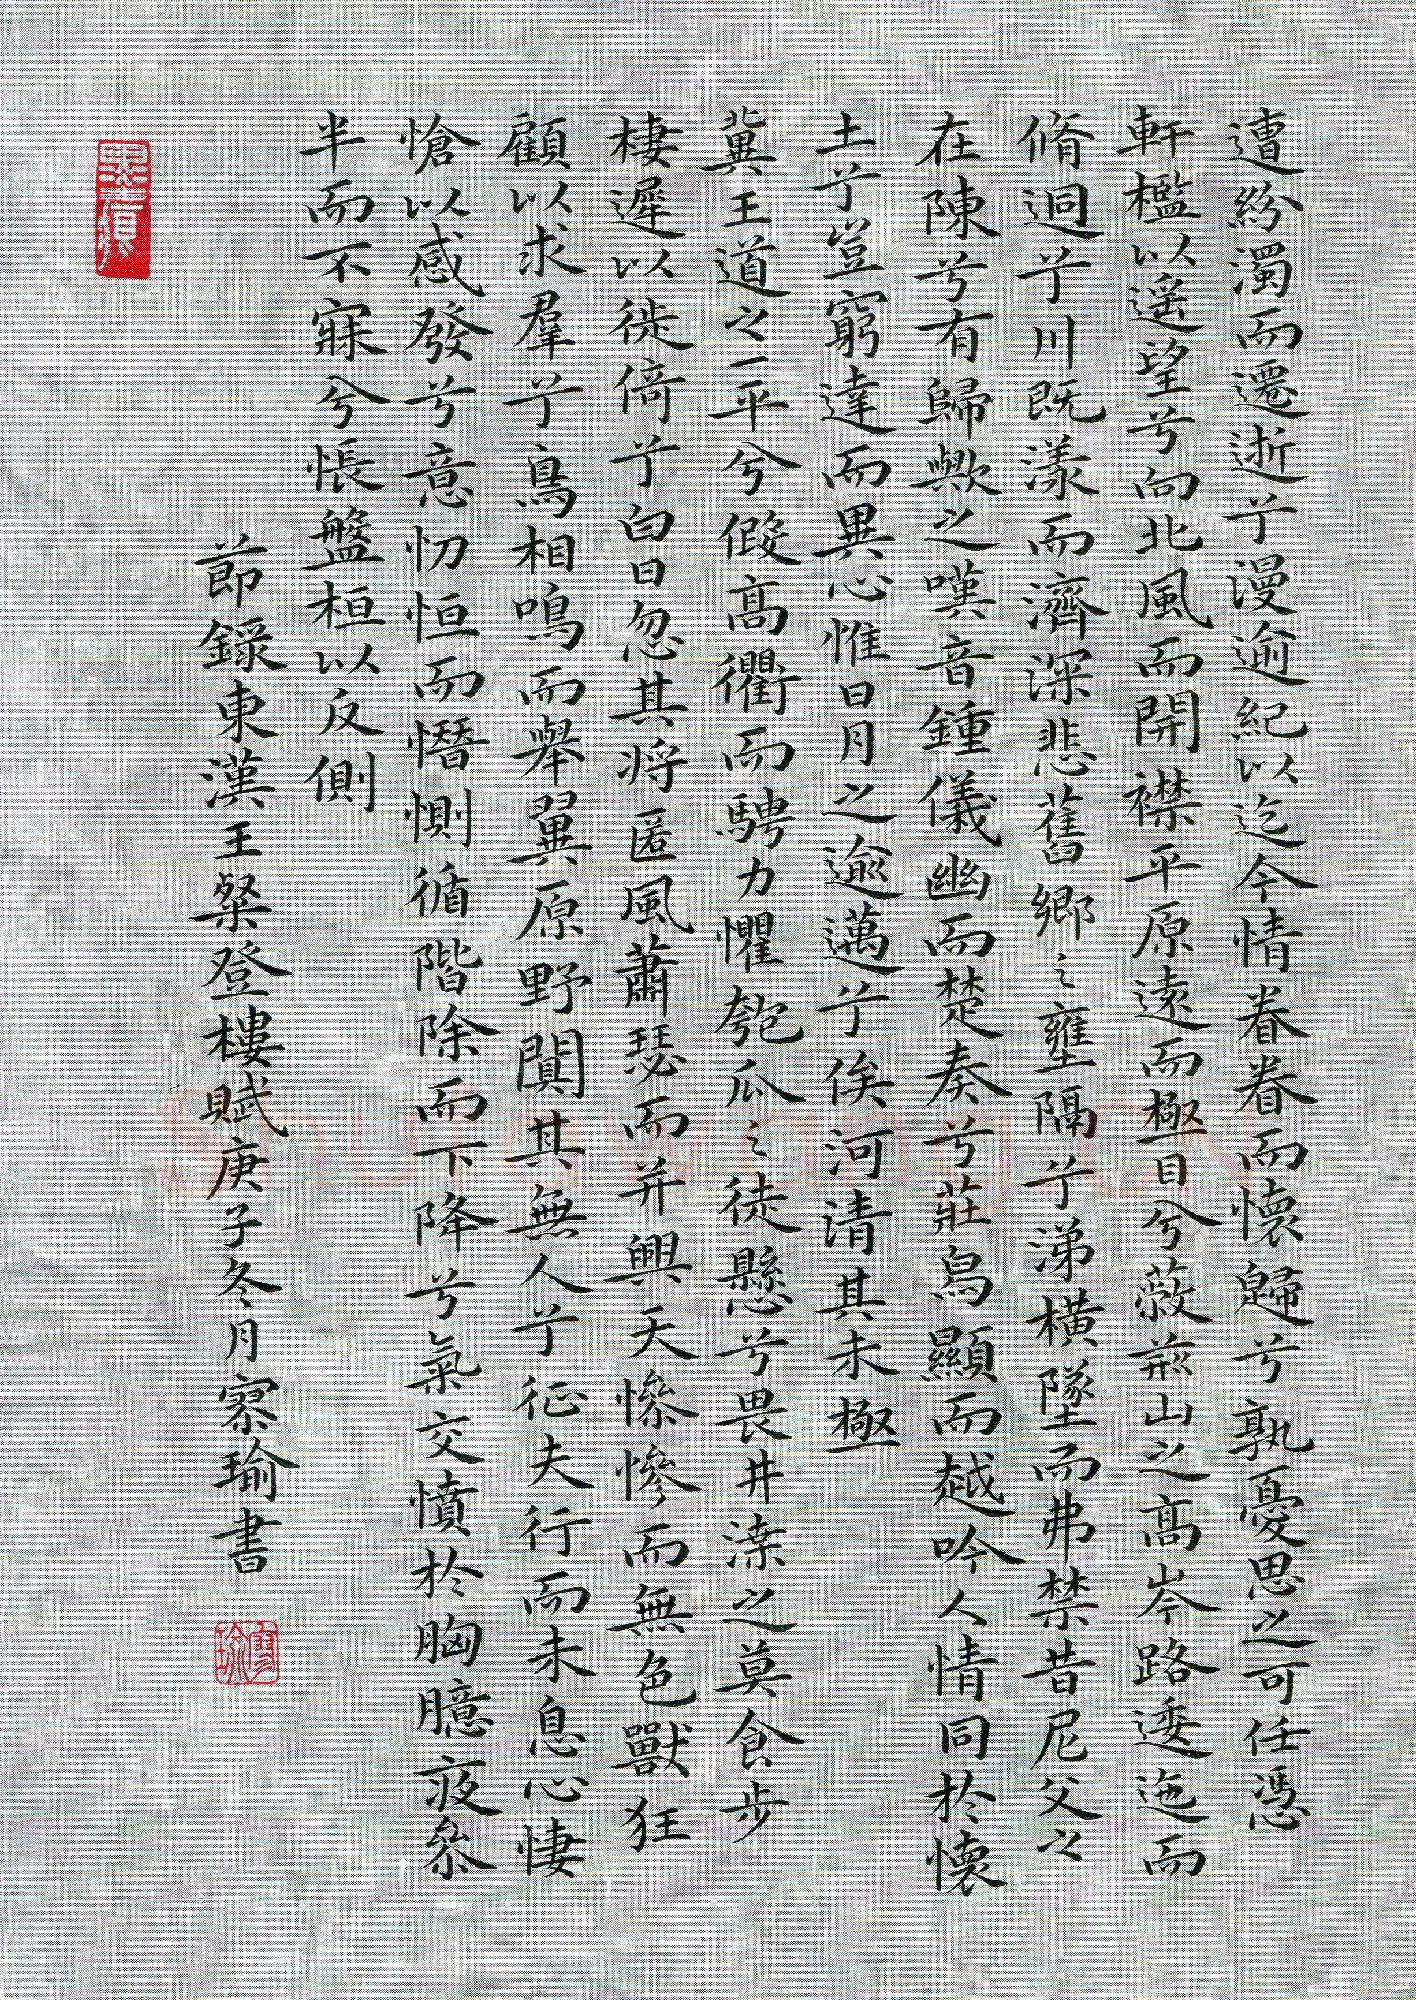 遭紛濁而遷逝兮漫逾紀以迄今情眷眷而懷歸兮孰憂思之可任憑
軒檻以遙望兮向北風而開襟平原遠而極目兮蔽荊山之高岑路逶迤而
脩迥兮川既漾而濟深悲舊鄉之壅隔兮涕橫墜而弗禁昔尼父之
在陳兮有歸歟之嘆音鍾儀幽而楚奏兮莊舄顯而越吟人情同於懷
土兮豈窮達而異心惟日月之逾邁兮俟河清其未極
冀王道之一平兮假高衢而騁力懼匏瓜之徒懸兮畏井渫之莫食步
棲遲以徙倚兮白日忽其將匿風蕭瑟而并興天慘慘而無色獸狂
顧以求羣兮鳥相鳴而舉翼原野闃其無人兮征夫行而未息心悽
愴以感發兮意忉怛而憯惻循階除而下降兮氣交憤於胸臆夜參
半而不寐兮悵盤桓以反側
節錄東漢王粲登樓賦庚子冬月寥瑜書